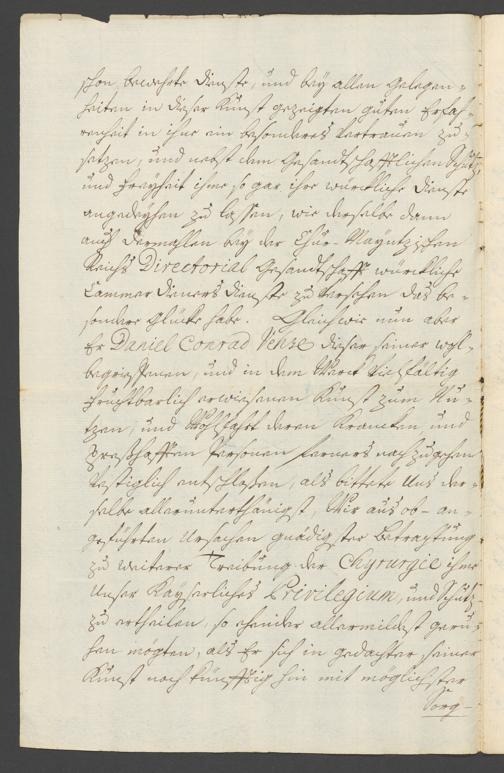 schon bewehrte dienste, und bey allen Gelegen-
heiten in dieser Kunst gezeigten guten Erfah-
renheit in ihne ein besonderes vertrauen zu
setzen, und nebst dem Gesandtschafftlichen Schutz,
und Freyheit ihme so gar ihre würckliche dienste
angedeyhen zu lassen, wie derselbe dann
auch dermallen bey der Chur-Mayntzischen
Reichs Directorial Gesandtschafft würckliche
Cammerdieners dienste zu versehen das be-
sondere Glück habe. Gleichwie nun aber
Er Daniel Conrad dieser seiner wohl-
begriffenen, und in dem Werck vielfältig
fruchtbarlich erwiesenen Kunst zum Nu-
tzen, und Wohlfahrt deren Krancken, und
presshafften Personen ferners nachzugehen
vestiglich entschlossen, als bittete Uns der-
selbe allerunterthänigst, Wir aus ob-an-
geführten Ursachen gnädigster Betrachtung
zu weiterer Treibung der Chyrurgie ihme
Unser Kayserliches Privilegium, und Schutz
zu ertheilen, so allermildest geru-
hen mögten, als Er sich in gedachter seiner
Kunst noch künfftig hin mit möglichster
Sorg-